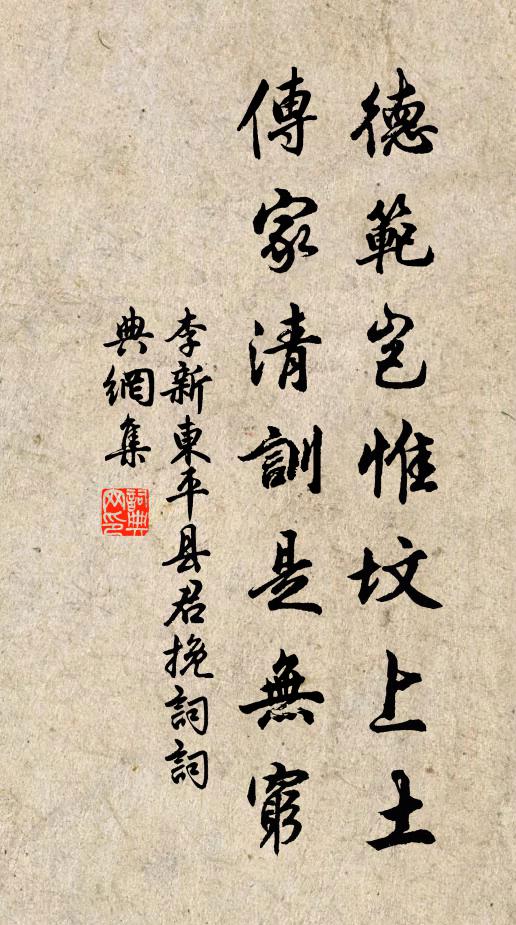 德範岂惟坟上土
傳家清訓是無窮
李新東平县君挽詞詞
典網集
詞典网印